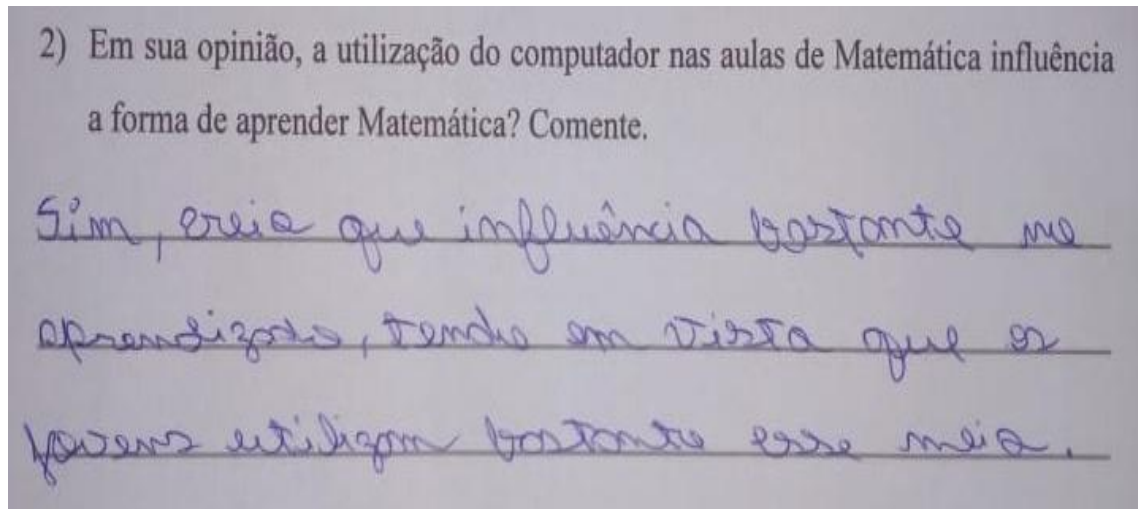 2) Em sua opinião, a utilização do computador nas aulas de Matemática influência
a forma de aprender Matemática? Comente.
Sim, creio que influência bastante no
aprendizado, tendo em vista que os
jovens utilizam bastante esse meio.